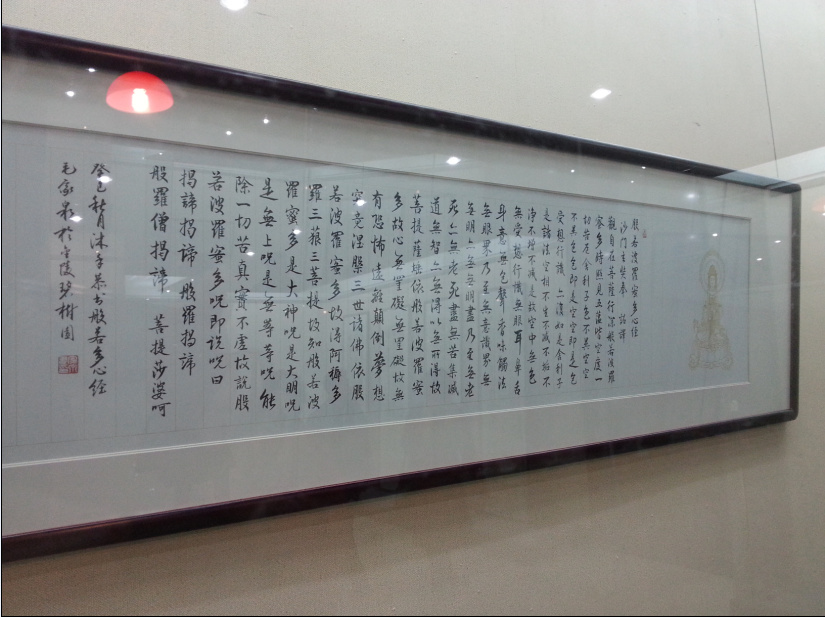 般若波羅蜜多心經
沙門玄奘奉 詔譯
觀自在菩薩行深般若波羅
蜜多時照見五蘊皆空度一
切苦厄舍利子色不異空空
不異色色即是空空即是色
受想行識亦復如是舍利子
是諸法空相不生不滅不垢不
淨不增不減是故空中無色
無受想行識無眼耳鼻舌
身意無色聲香味觸法
無眼界乃至無意識界無
無明亦無無明盡乃至無老
死亦無老死盡無苦集滅
道無智亦無得以無所得故
菩提薩埵依般若波羅蜜
多故心無罣礙無罣礙故無
有恐怖遠離顛倒夢想
究竟涅槃三世諸佛依般
若波羅蜜多故得阿耨多
羅三藐三菩提故知般若波
羅蜜多是大神咒是大明咒
是無上咒是無等等咒能
除一切苦真實不虛故說般
若波羅蜜多咒即說咒曰
揭諦揭諦 般羅揭諦
般羅僧揭諦 菩提莎婆呵
癸巳秋月沐手恭书般若多心經
毛家於金陵碧樹園